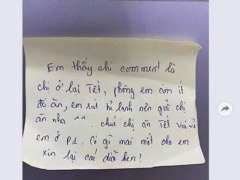 Em thấy chị comment là
chị ở lại Tết, phòng em còn ít
đồ ăn, em rút tủ lạnh nên gửi chị
ăn nha ^^. chúc chị ăn Tết vui vẻ
em ở P2. Có gì mai mốt cho em
xin lại cái dĩa hen!